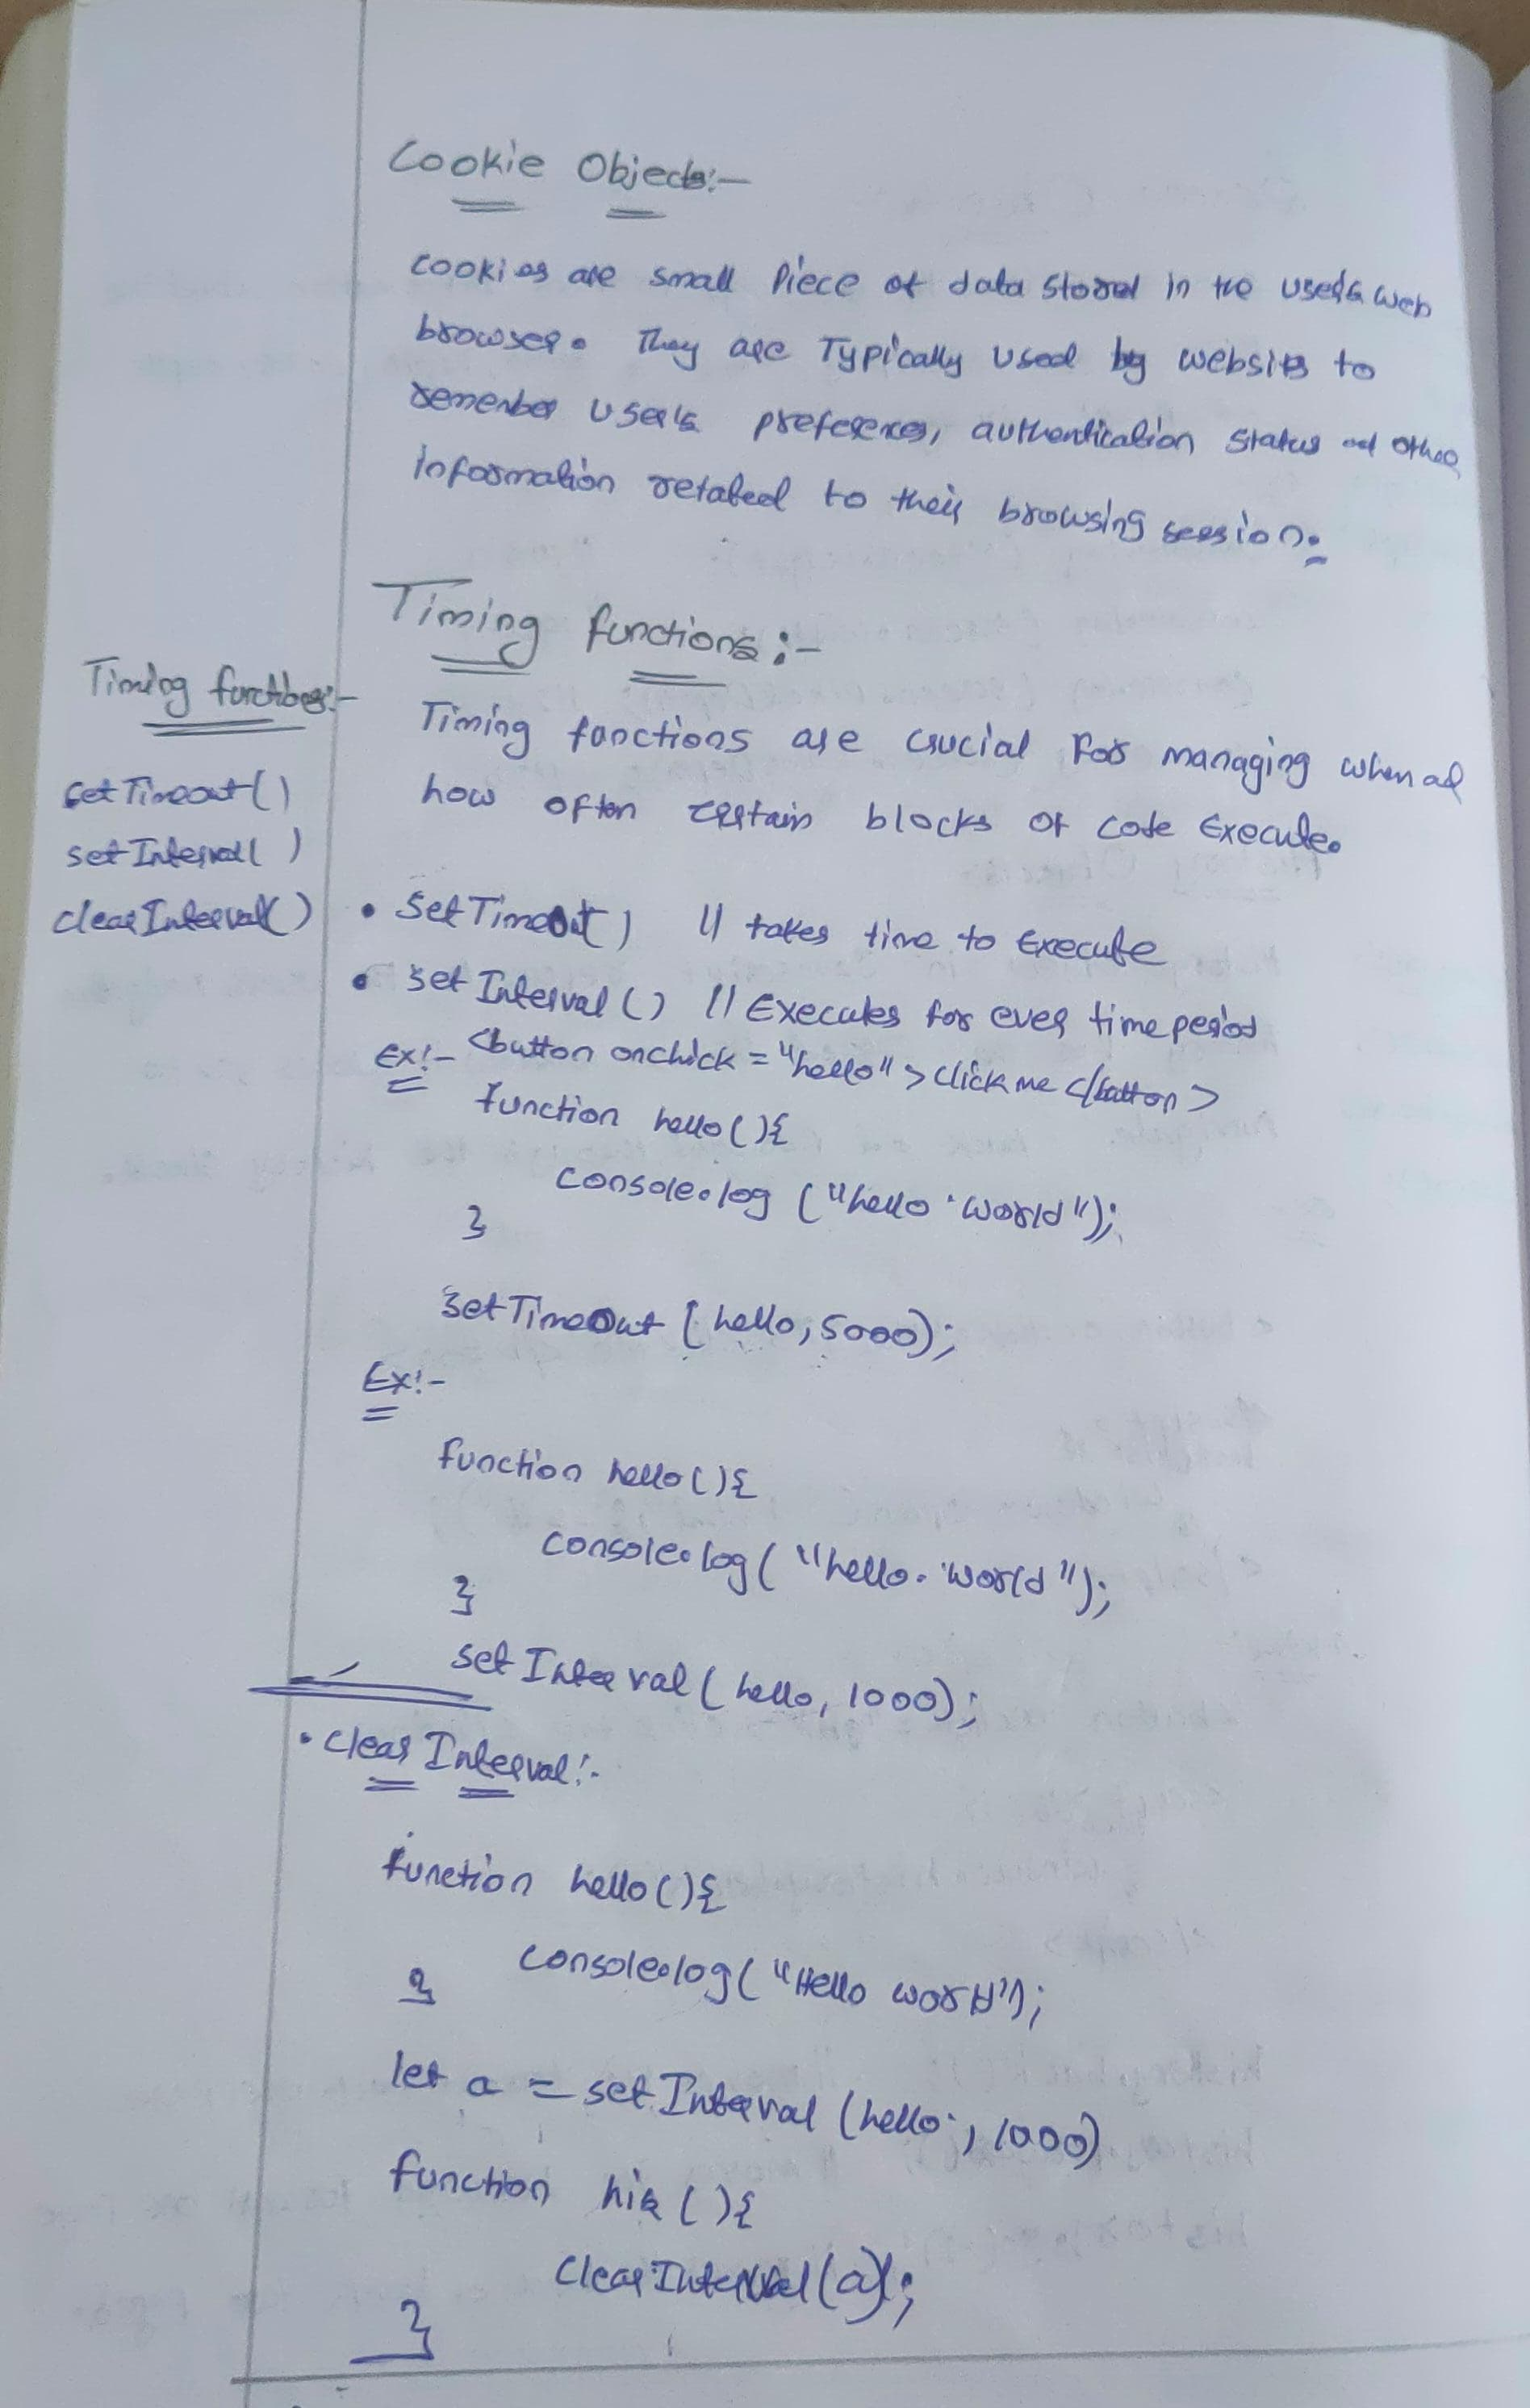 Cookie Objects:-
Cookies are small Piece of data stored in the user's web
browser. They are Typically used by websites to
remember user's preferences, authentication status and other
information retabed to their browsing session.
Timing functions:-
Timing functions:-
setTimeout()
setInterval()
clearInterval()
Timing functions are crucial for managing when ad
how often certain blocks of code Execute.
• SetTimeOut() // takes time to Execute
• setInterval() // Executes for ever time period
Ex:- <button onchick = "hello" > Click me </button>
function hello(){
console.log ("hello world");
}
setTimeOut (hello, 5000);
Ex:-
function hello(){
console.log("hello world");
}
setInterval(hello, 1000);
• Clear Interval:-
function hello(){
console.log("Hello world");
}
let a = setInterval (hello, 1000)
function hia(){
ClearInterval(a);
}